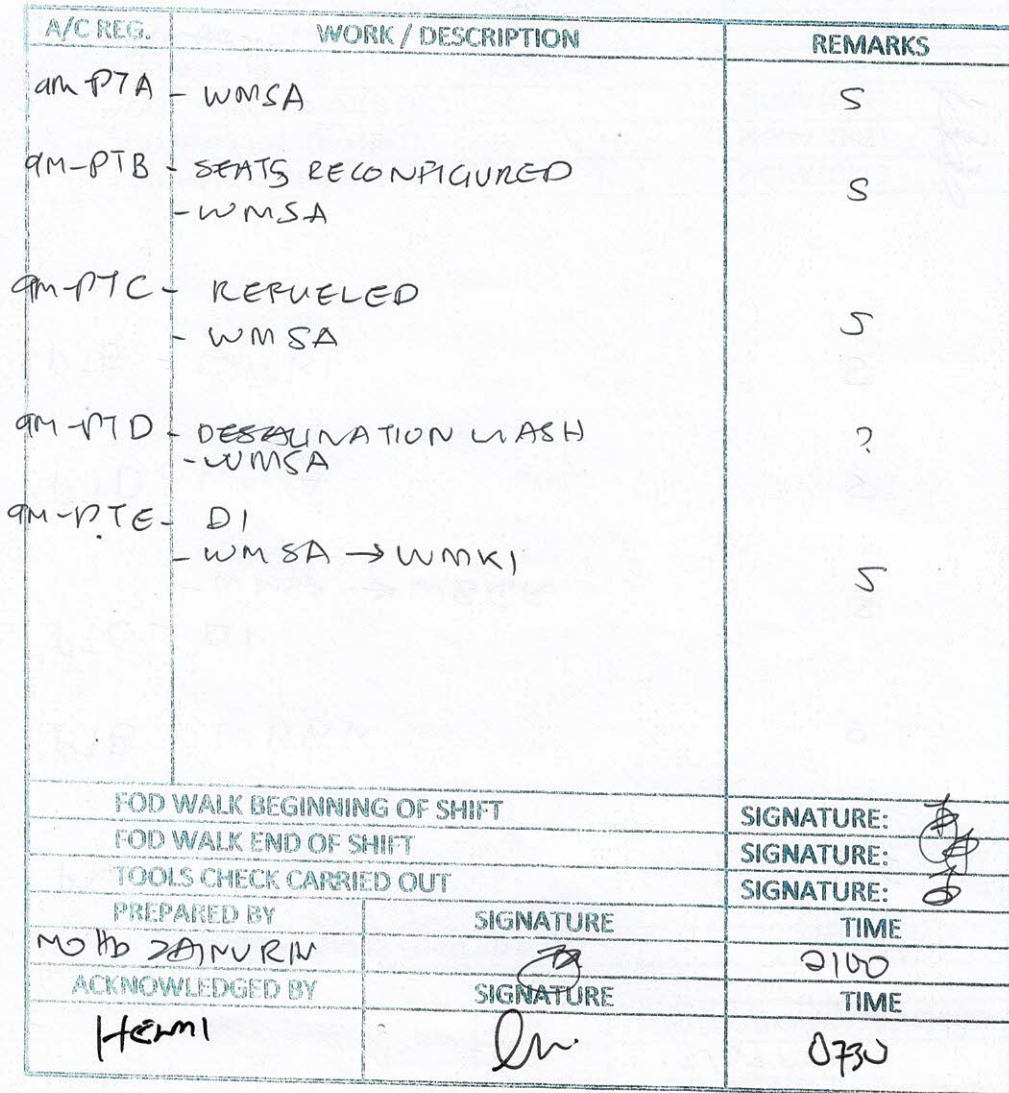 A/C REG. WORK / DESCRIPTION REMARKS
9M-PTA - WMSA S
9M-PTB - SEATS RECONFIGURED S
- WMSA
9M-PTC - REFUELED
- WMSA S
9M-PTD - DESALINATION WASH ?
- WMSA
9M-PTE - DI
- WMSA → WMKI S
FOD WALK BEGINNING OF SHIFT SIGNATURE:
FOD WALK END OF SHIFT SIGNATURE:
TOOLS CHECK CARRIED OUT SIGNATURE:
PREPARED BY SIGNATURE TIME
MOHD ZAINURIN 2100
ACKNOWLEDGED BY SIGNATURE TIME
HELMI 0730